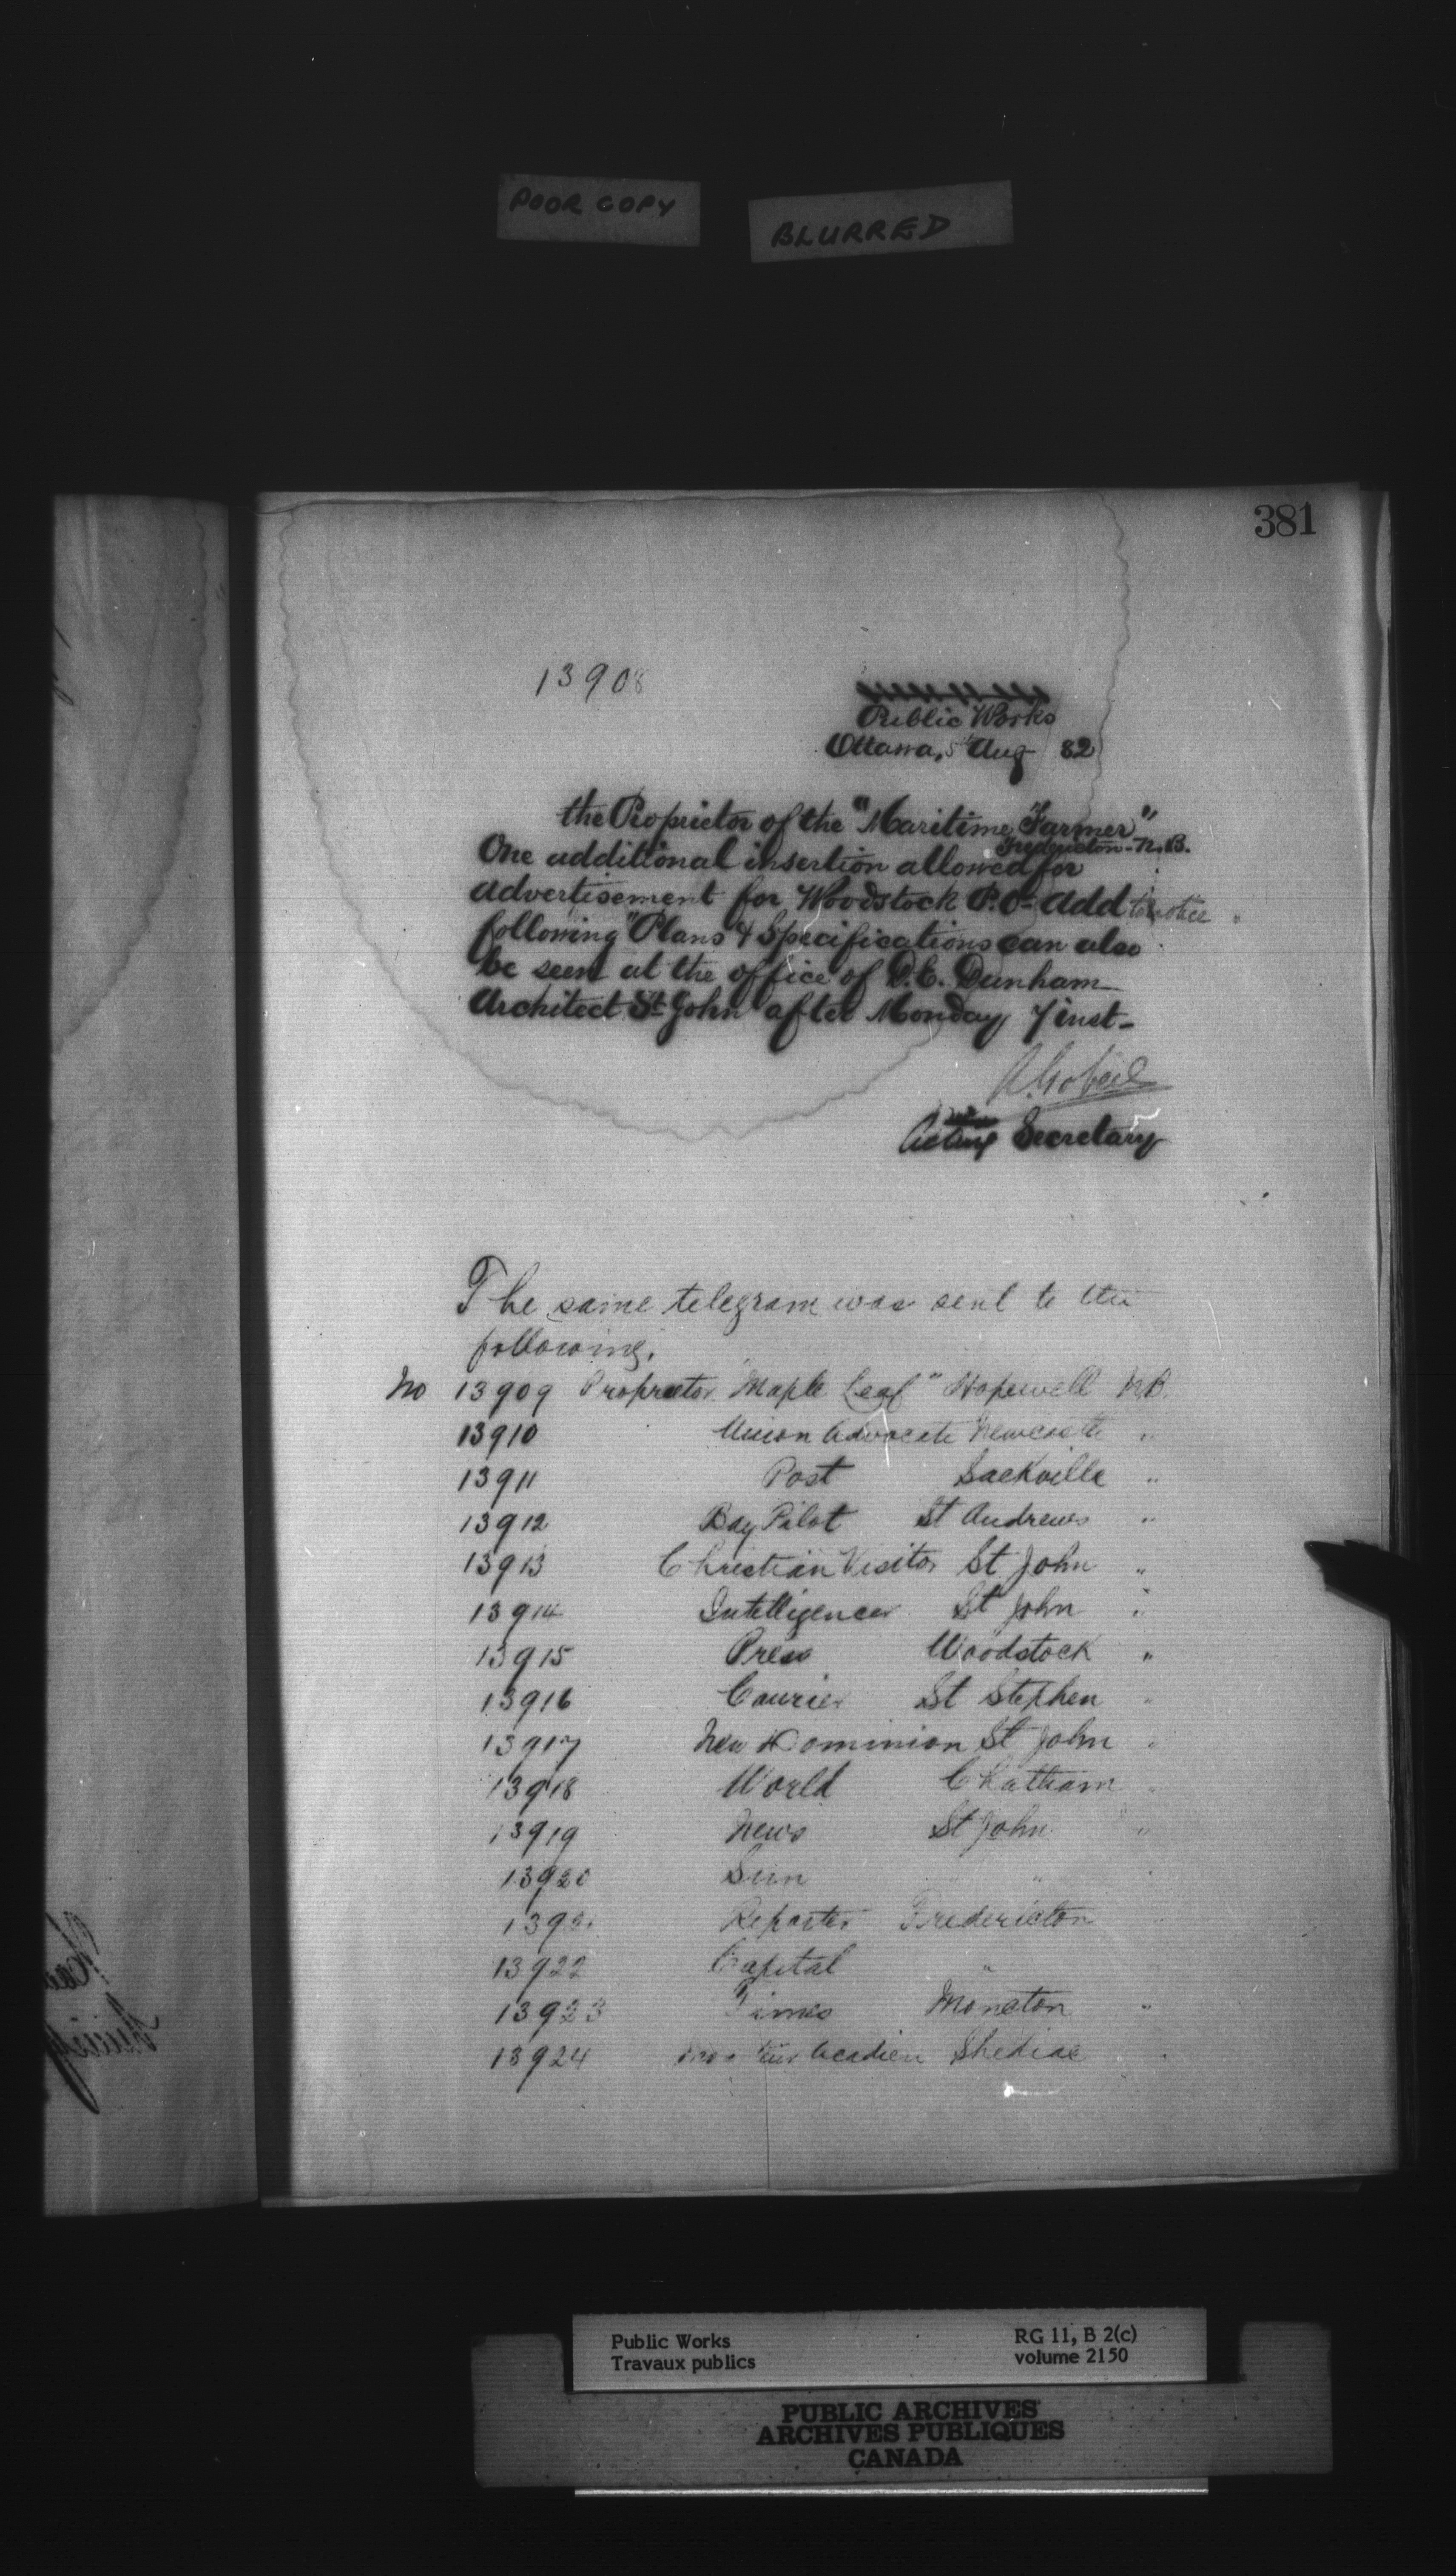 POOR COPY
BLURRED
381
13908
Public Works
Ottawa, 5th Aug 82
the Proprietor of the "Maritime Farmer"
Fredericton - N.B.
One additional insertion allowed for
advertisement for Woodstock P.O - add to notice
following "Plans & Specifications can also
be seen at the office of D.E. Dunham
Architect St John after Monday 7 inst -
A. Gobeil
Acting Secretary
The same telegram was sent to the
following.
No 13909 Proprietor "Maple Leaf" Hopewell N.B.
13910 Union Advocate Newcastle "
13911 Post Sackville "
13912 Bay Pilot St Andrews "
13913 Christian Visitor St John "
13914 Intelligencer St John "
13915 Press Woodstock "
13916 Courier St Stephen "
13917 New Dominion St John "
13918 World Chatham "
13919 News St John "
13920 Sun " "
1392 Reporter Fredericton
13922 Capital "
13923 Times Moncton "
13924 Acadien Shediac
Public Works
Travaux publics
RG 11, B 2(c)
volume 2150
PUBLIC ARCHIVES
ARCHIVES PUBLIQUES
CANADA